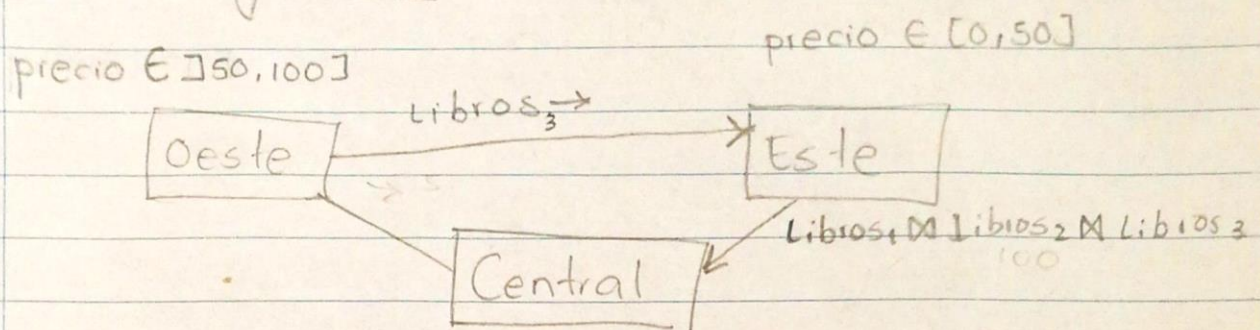 precio ∈ [0,50]
precio ∈ ]50,100]
Libros₃→
Oeste
Este
Libros₁ ⋈ Libros₂ ⋈ Libros₃
100
Central